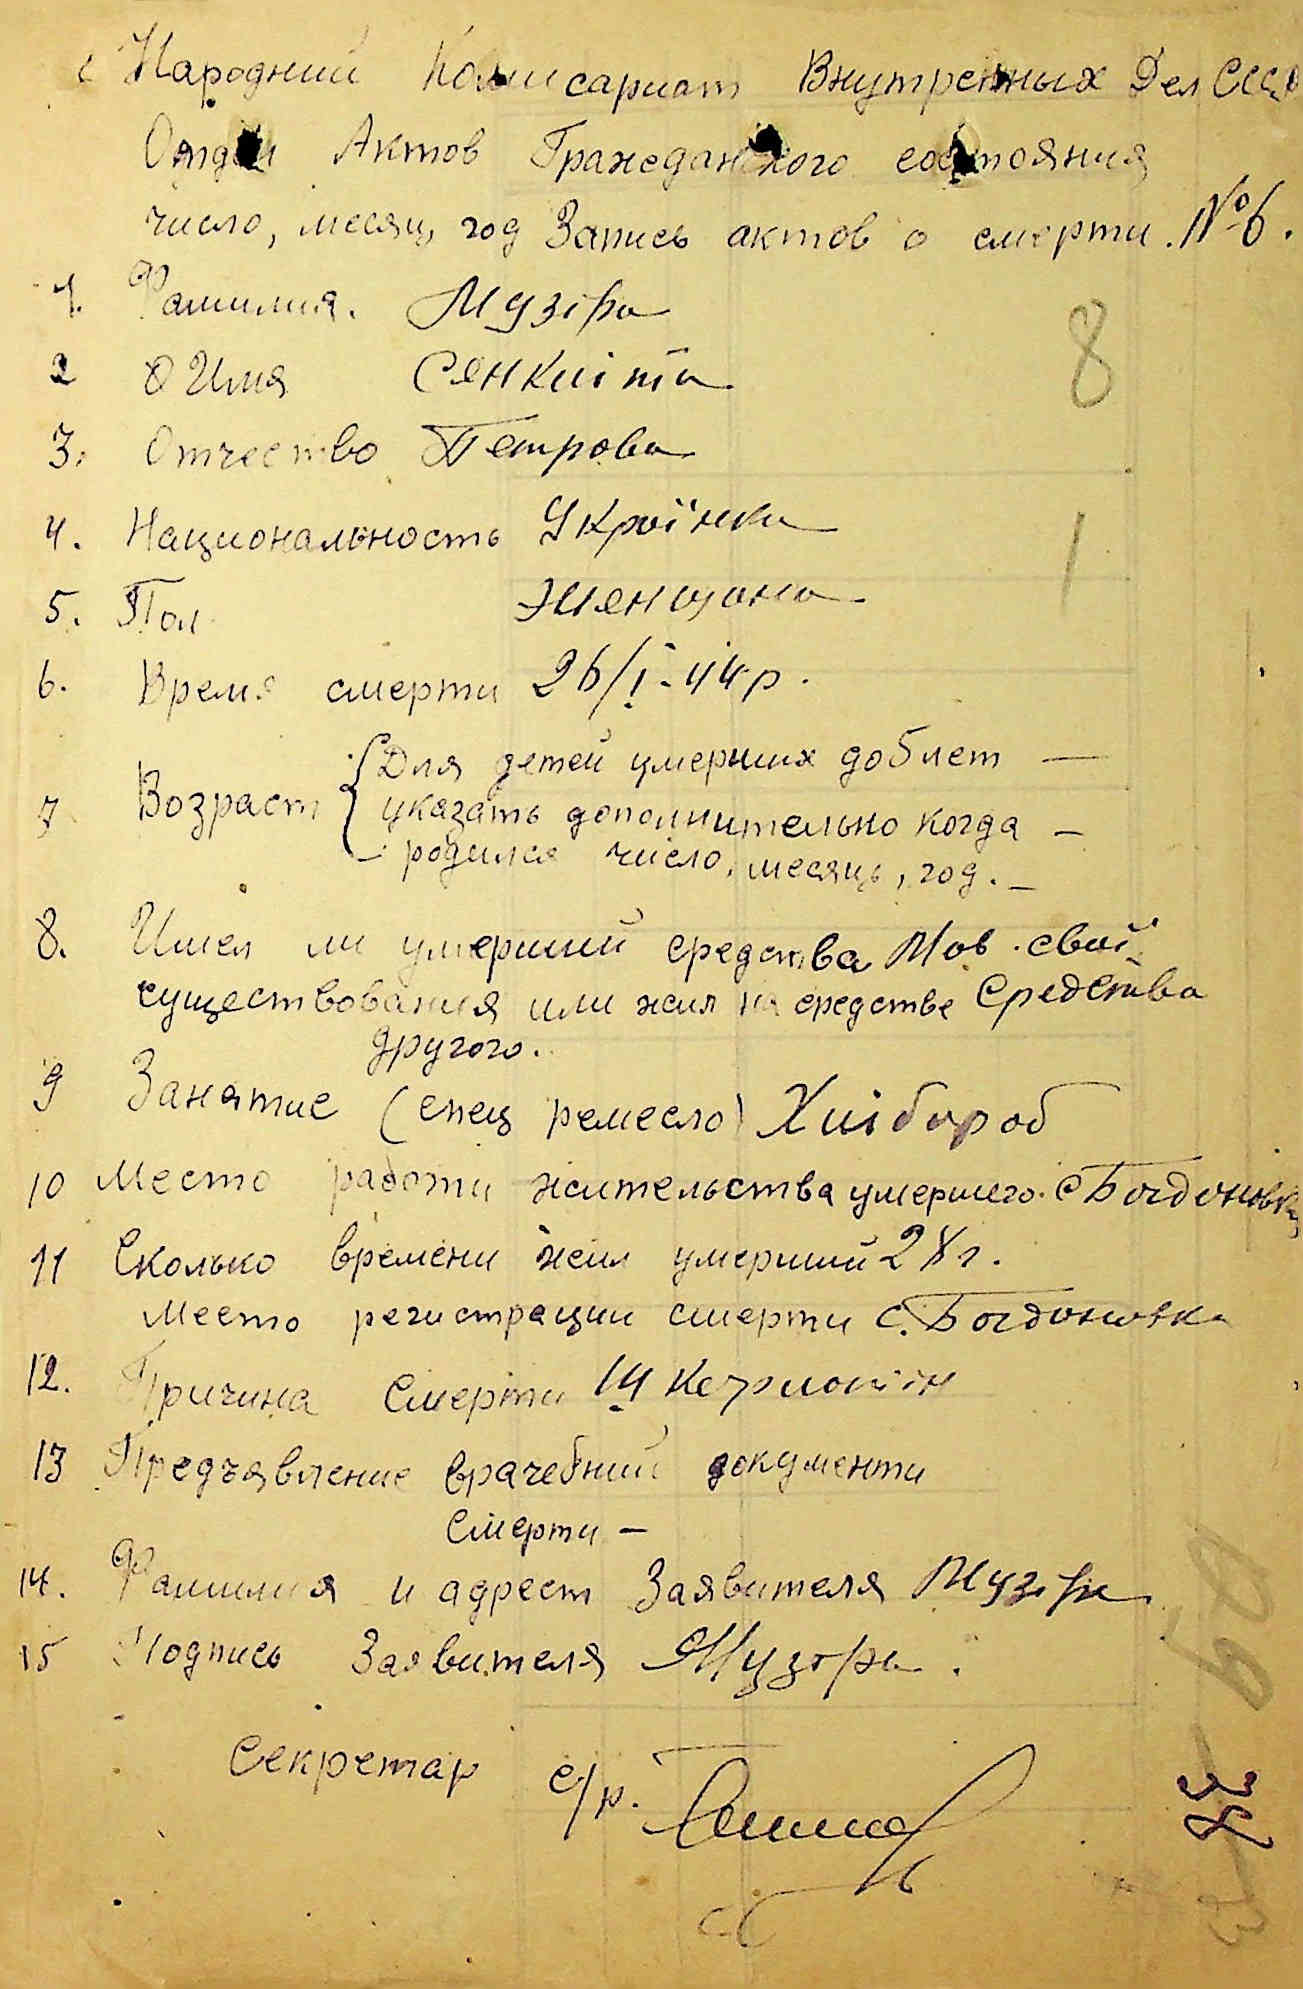 Народний Комисариат Внутренных Дел СССР
Отдел Актов Гражеданского состояния
число, месяц, год Запись актов о смерти. № 6.
1. Фамилия. Музіра
2 Имя Сянкліта
3. Отчество Петрова
4. Национальность Україінка
5. Пол Женщина
6. Время смерти 26/I-44 р.
7 Возраст {Для детей умерших до 5 лет —
указать дополнительно когда —
родился число, месяць, год. —
8. Имел ли умерший средства Мав. свої
существования или жил на средстве средства
другого.
9 Занятие (спец ремесло) Хлібороб
10 Место работи жительства умершего. с Богдоновка
11 Сколько времени жил умерший 28 г.
Место регистрации смерти с. Богдоновка
12. Причина Смерти
13 Предъявление врачебний документи
Смерти —
14. Фамилия и адрест Заявителя Музіра
15 Подпись Заявителя Музора.
Секретар с/р.
8
1